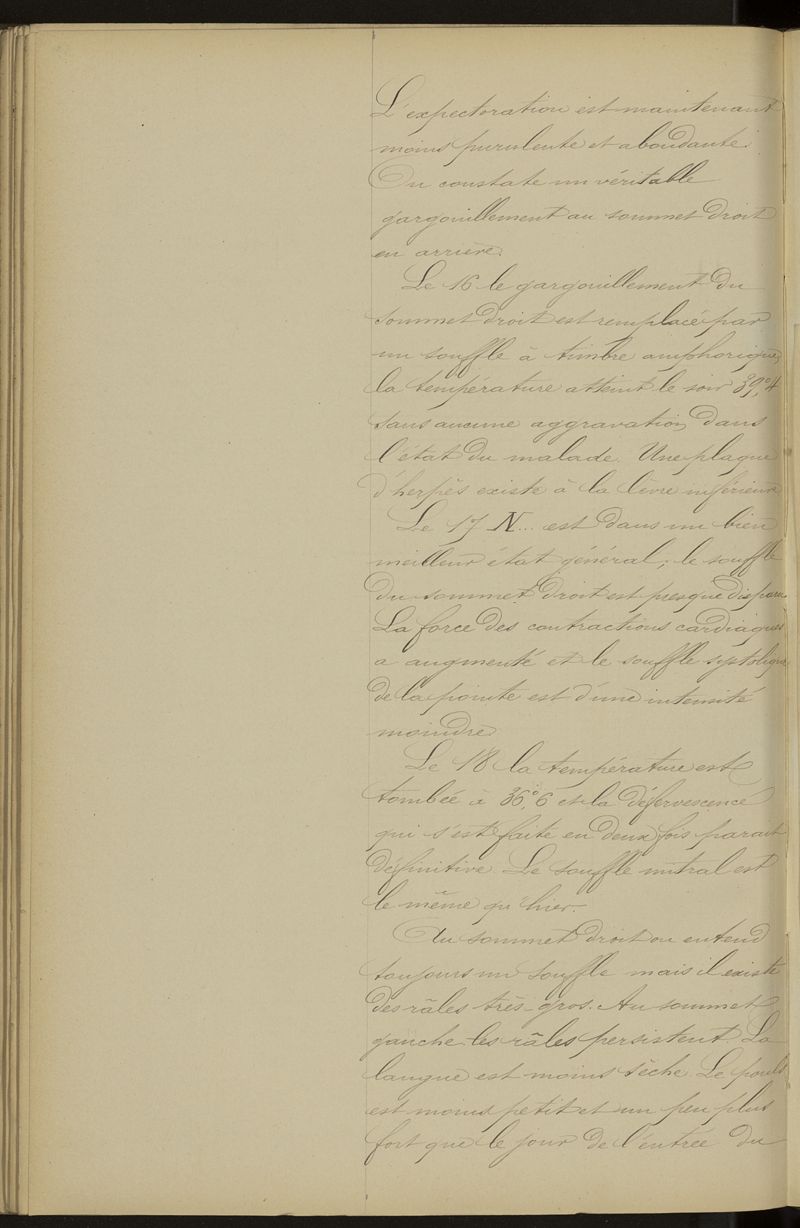 L'expectoration est maintenant
moins purulente et abondante.
On constate un véritable
gargouillement au sommet droit
en arrière.
Le 16 le gargouillement du
sommet droit est remplacé par
un souffle à timbre amphorique,
la température atteint le soir 39°,4
sans aucune aggravation dans
l'état du malade. Une plaque
d'herpès existe à la lèvre inférieure
Le 17 N... est dans un bien
meilleur état général; le souffle
du sommet droit est presque disparu
La force des contractions cardiaques
a augmenté et le souffle systolique
de la pointe est d'une intensité
moindre
Le 18 la température est
tombée à 36°,6 et la défervescence
qui s'est faite en deux fois parait
définitive. Le souffle mitral est
le même qu'hier.
Au sommet droit on entend
toujours un souffle mais il existe
des râles très-gros. Au sommet
gauche les râles persistent. La
langue est moins sèche. Le pouls
est moins petit et un peu plus
fort que le jour de l'entrée du